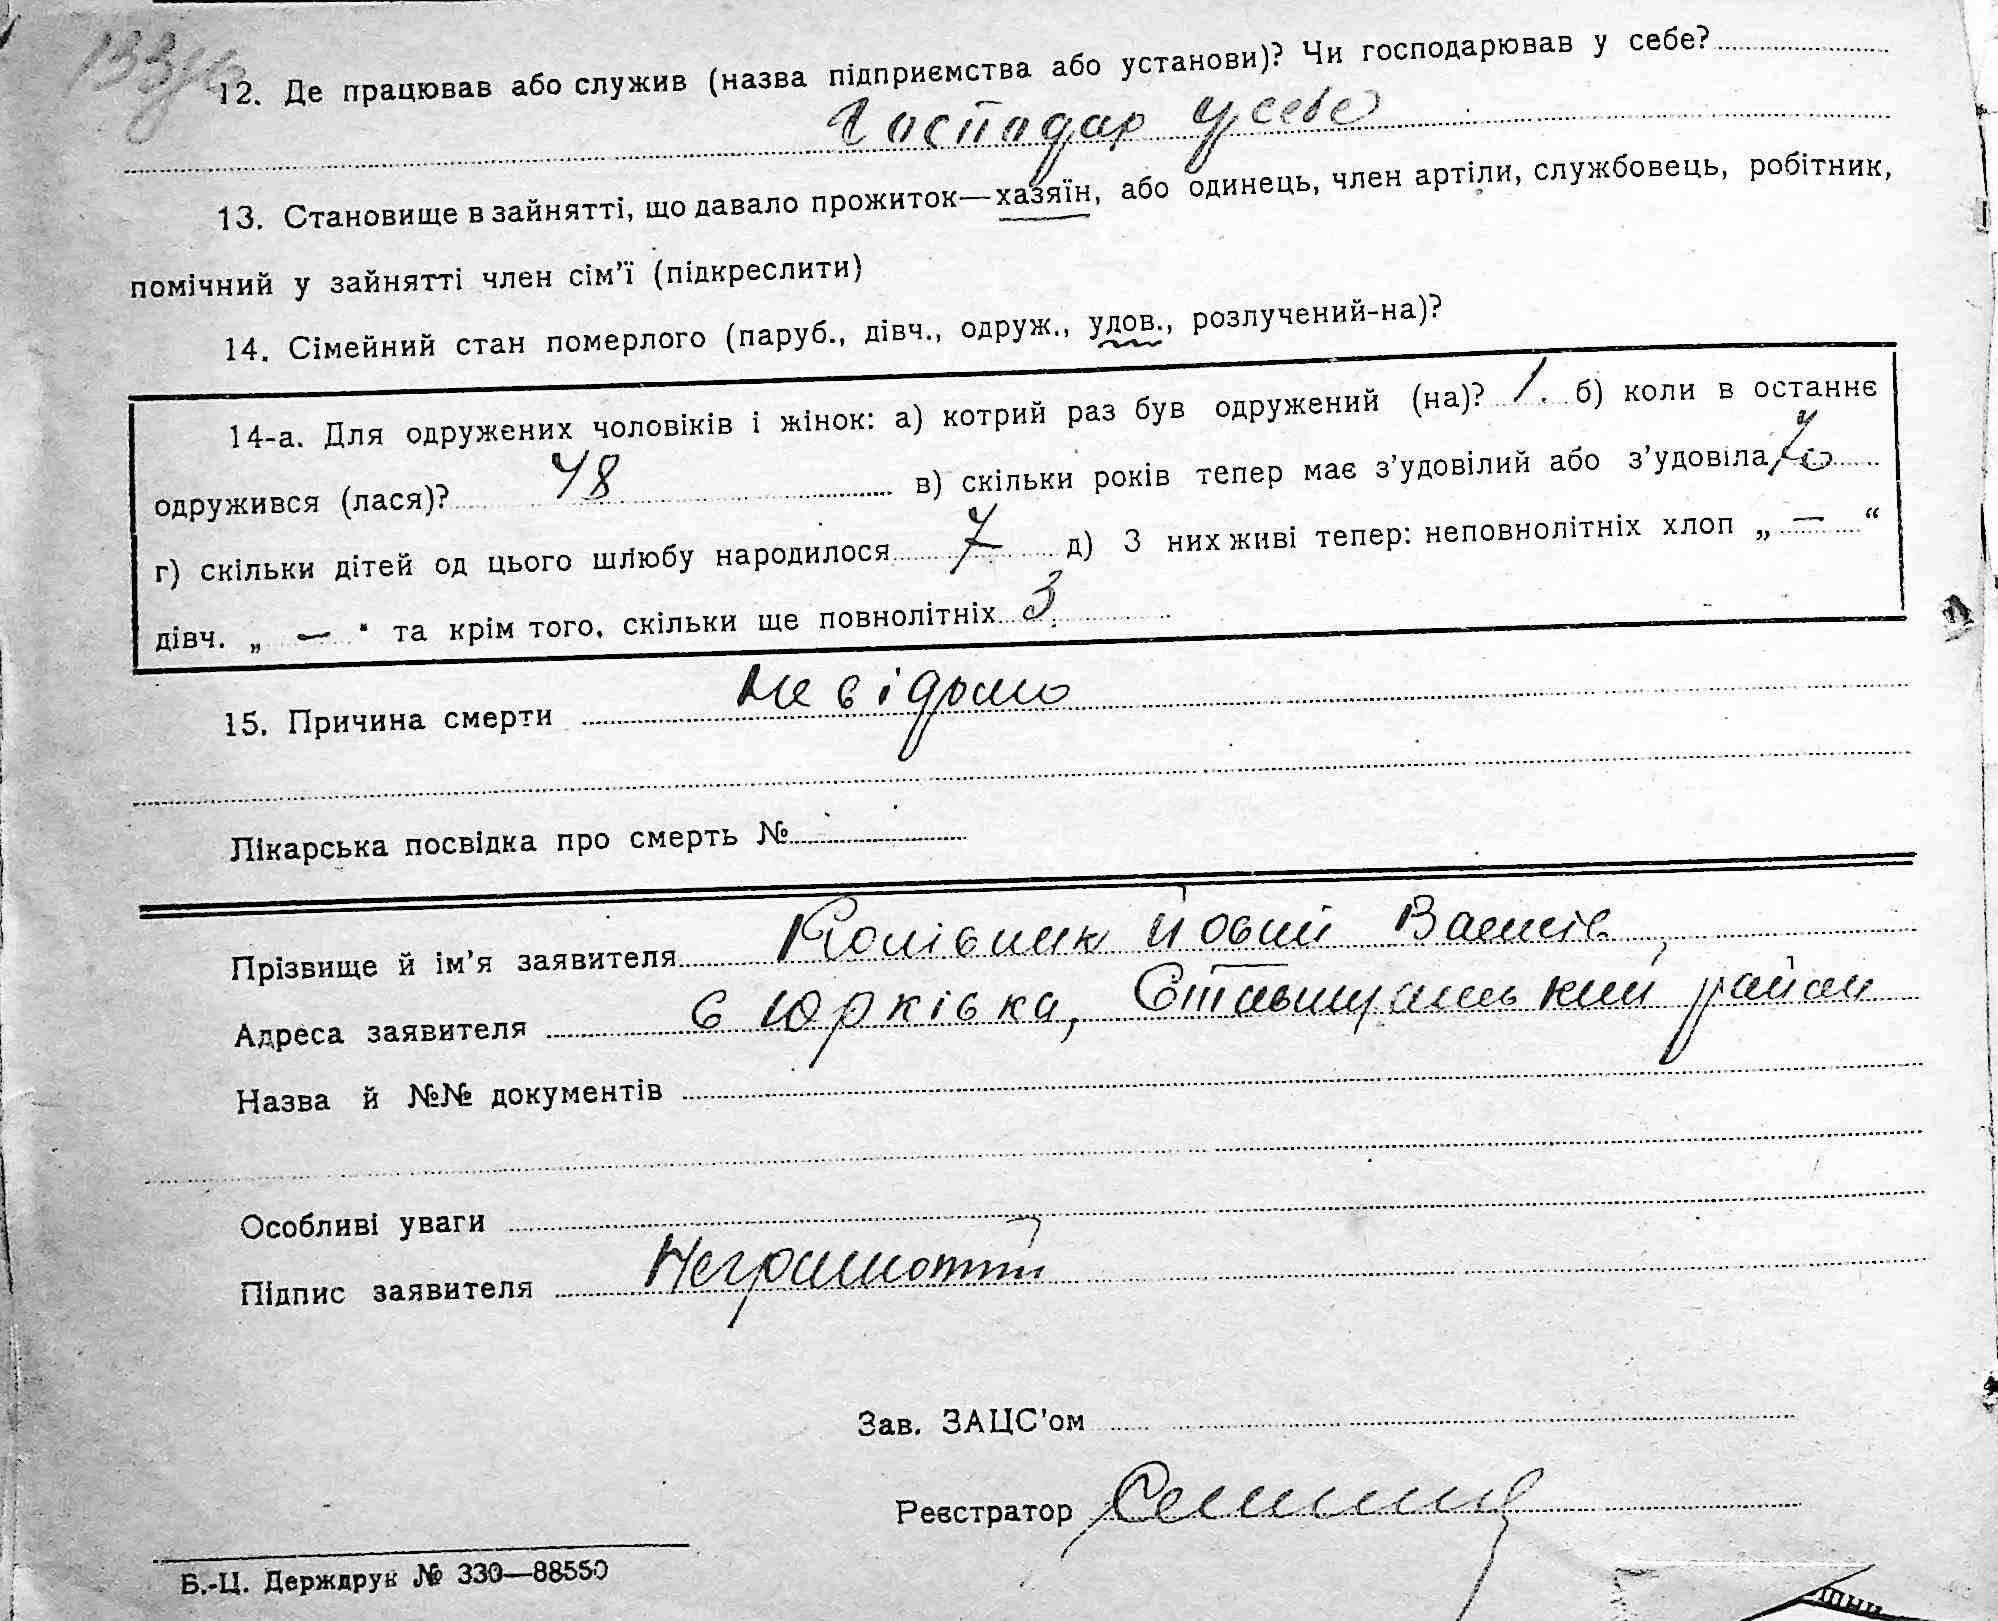 12. Де працював або служив (назва підприємства або установи)? Чи господарював у себе?
Господар у себе
13. Становище в зайнятті, що давало прожиток—хазяїн, або одинець, член артіли, службовець, робітник,
помічний у зайнятті член сім’ї (підкреслити)
14. Сімейний стан померлого (паруб., дівч., одруж., удов., розлучений-на)?
14-а. Для одружених чоловіків і жінок: а) котрий раз був одружений (на)? 1. б) коли в останнє
одружився (лася)? 48 в) скільки років тепер має з’удовілий або з’удовіла 70
г) скільки дітей од цього шлюбу народилося 7 д) З них живі тепер: неповнолітніх хлоп „ — “
дівч. „ — “ та крім того, скільки ще повнолітніх 3.
15. Причина смерти невідомо
Лікарська посвідка про смерть №
Прізвище й ім’я заявителя Йовхим
Адреса заявителя с Юрківка, Ставищанський район
Назва й №№ документів
Особливі уваги
Підпис заявителя Неграмотний
Зав. ЗАЦС’ом
Реєстратор
Б.-Ц. Держдрук № 330—88550